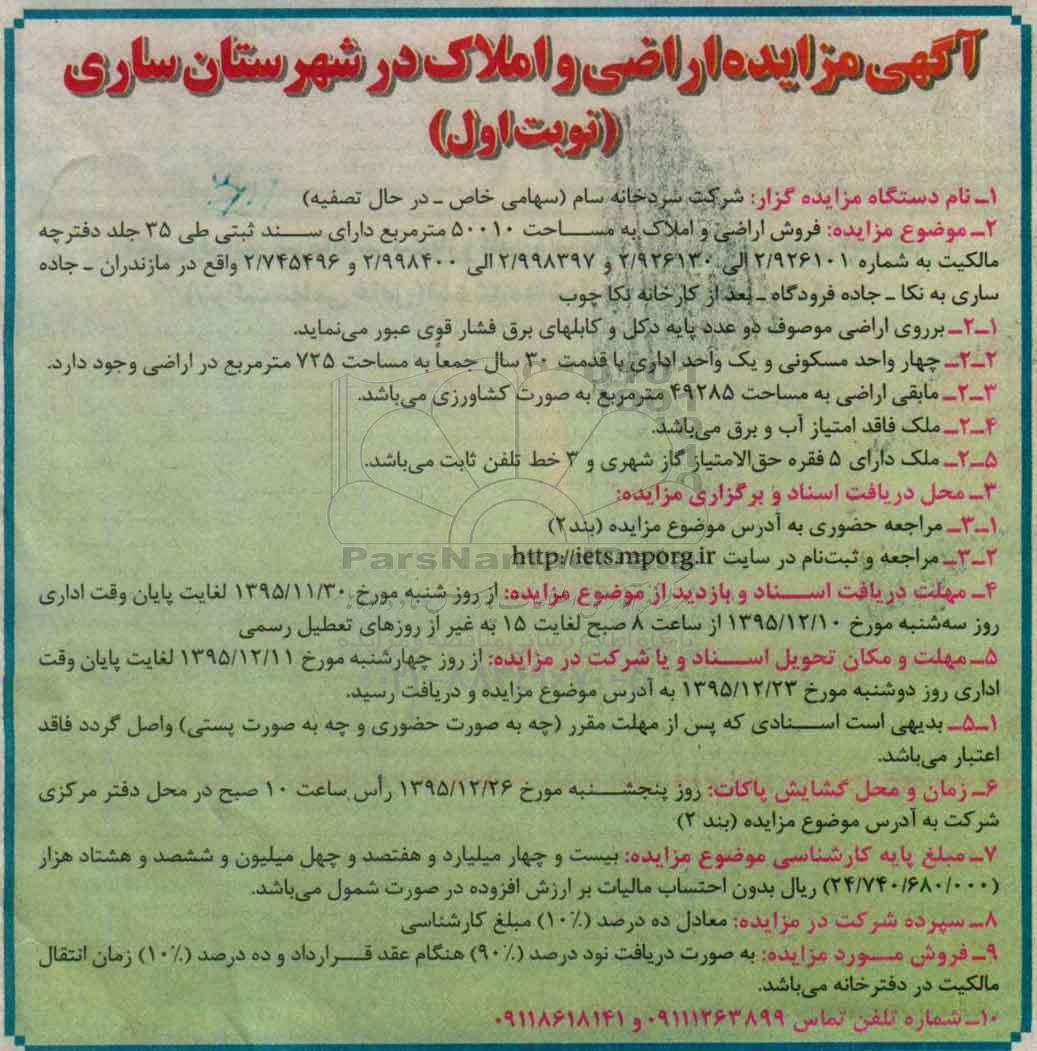 آگهی مزایده اراضی و املاک در شهرستان ساری
(نوبت اول)
۱ـ نام دستگاه مزایده گزار: شرکت سردخانه سام (سهامی خاص ـ در حال تصفیه)
۲ـ موضوع مزایده: فروش اراضی و املاک به مساحت ۵۰۰۱۰ مترمربع دارای سند ثبتی طی ۳۵ جلد دفترچه
مالکیت به شماره ۲/۹۲۶۱۰۱ الی ۲/۹۲۶۱۳۰ و ۲/۹۹۸۳۹۷ الی ۲/۹۹۸۴۰۰ و ۲/۷۴۵۴۹۶ واقع در مازندران ـ جاده
ساری به نکا ـ جاده فرودگاه ـ بعد از کارخانه نکا چوب
۲ـ۱ـ برروی اراضی موصوف دو عدد پایه دکل و کابلهای برق فشار قوی عبور می‌نماید.
۲ـ۲ـ چهار واحد مسکونی و یک واحد اداری با قدمت ۳۰ سال جمعاً به مساحت ۷۲۵ مترمربع در اراضی وجود دارد.
۲ـ۳ـ مابقی اراضی به مساحت ۴۹۲۸۵ مترمربع به صورت کشاورزی می‌باشد.
۲ـ۴ـ ملک فاقد امتیاز آب و برق می‌باشد.
۲ـ۵ـ ملک دارای ۵ فقره حق‌الامتیاز گاز شهری و ۳ خط تلفن ثابت می‌باشد.
۳ـ محل دریافت اسناد و برگزاری مزایده:
۳ـ۱ـ مراجعه حضوری به آدرس موضوع مزایده (بند۲)
۳ـ۲ـ مراجعه و ثبت‌نام در سایت http://iets.mporg.ir
۴ـ مهلت دریافت اسناد و بازدید از موضوع مزایده: از روز شنبه مورخ ۱۳۹۵/۱۱/۳۰ لغایت پایان وقت اداری
روز سه‌شنبه مورخ ۱۳۹۵/۱۲/۱۰ از ساعت ۸ صبح لغایت ۱۵ به غیر از روزهای تعطیل رسمی
۵ـ مهلت و مکان تحویل اسناد و یا شرکت در مزایده: از روز چهارشنبه مورخ ۱۳۹۵/۱۲/۱۱ لغایت پایان وقت
اداری روز دوشنبه مورخ ۱۳۹۵/۱۲/۲۳ به آدرس موضوع مزایده و دریافت رسید.
۵ـ۱ـ بدیهی است اسنادی که پس از مهلت مقرر (چه به صورت حضوری و چه به صورت پستی) واصل گردد فاقد
اعتبار می‌باشد.
۶ـ زمان و محل گشایش پاکات: روز پنجشنبه مورخ ۱۳۹۵/۱۲/۲۶ رأس ساعت ۱۰ صبح در محل دفتر مرکزی
شرکت به آدرس موضوع مزایده (بند ۲)
۷ـ مبلغ پایه کارشناسی موضوع مزایده: بیست و چهار میلیارد و هفتصد و چهل میلیون و ششصد و هشتاد هزار
(۲۴/۷۴۰/۶۸۰/۰۰۰) ریال بدون احتساب مالیات بر ارزش افزوده در صورت شمول می‌باشد.
۸ـ سپرده شرکت در مزایده: معادل ده درصد (۱۰٪) مبلغ کارشناسی
۹ـ فروش مورد مزایده: به صورت دریافت نود درصد (۹۰٪) هنگام عقد قرارداد و ده درصد (۱۰٪) زمان انتقال
مالکیت در دفترخانه می‌باشد.
۱۰ـ شماره تلفن تماس ۰۹۱۱۱۲۶۳۸۹۹ و ۰۹۱۱۸۶۱۸۱۴۱